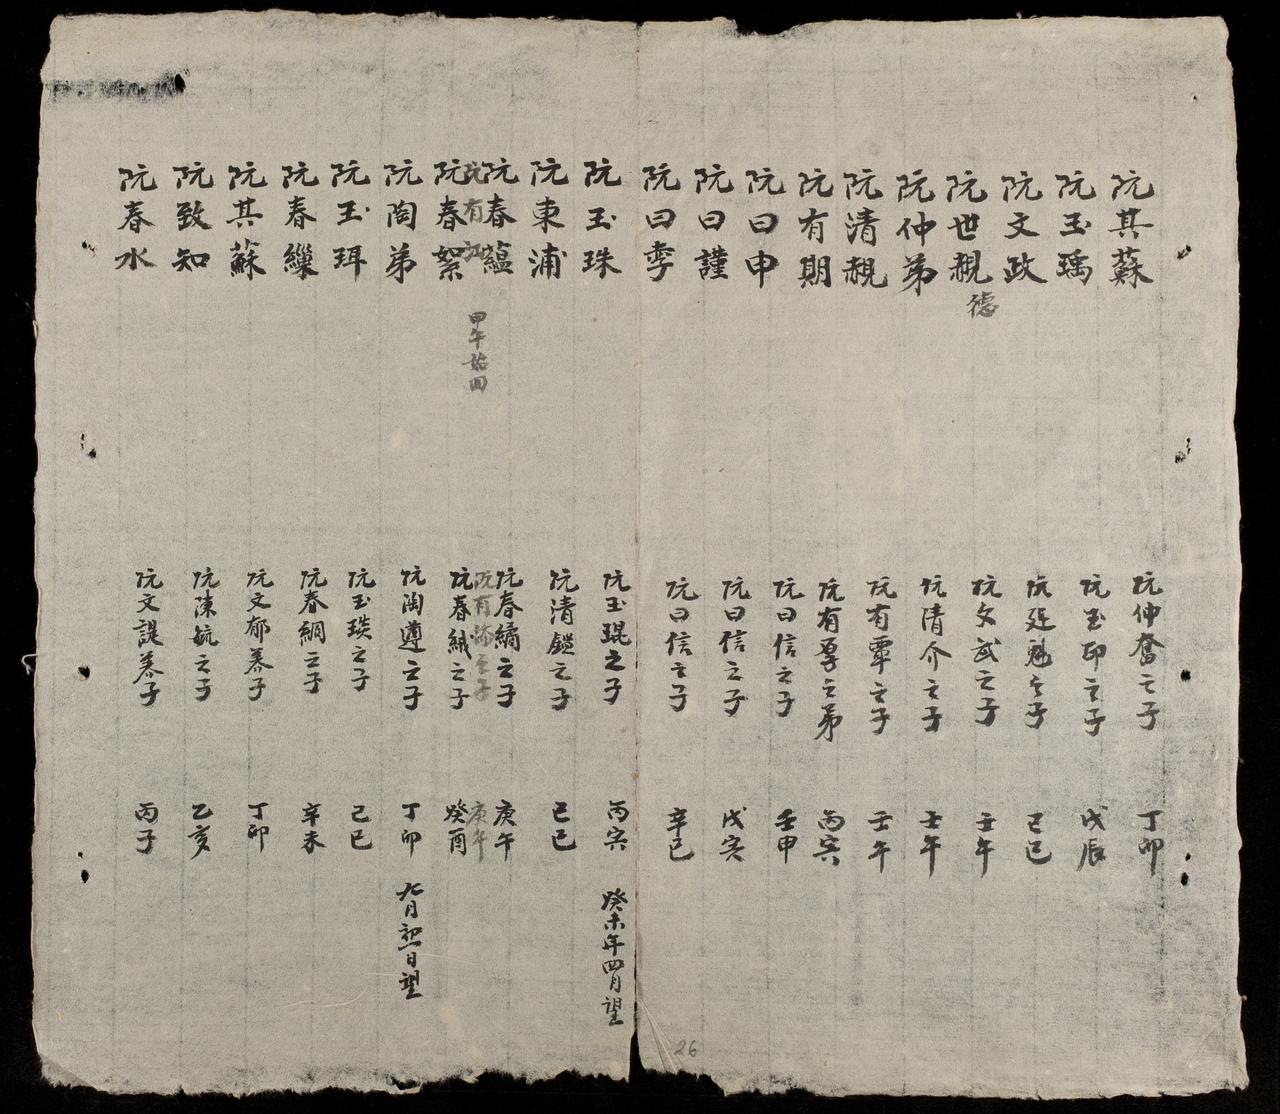 阮其蘇 阮仲奮之子 丁卯
阮玉瑀 阮玉印之子 戊辰
阮文政 阮廷魁之子 己巳
阮世覩 德 阮文武之子 壬午
阮仲弟 阮清介之子 壬午
阮清覩 阮有覃之子 壬午
阮有期 阮有厚之弟 丙寅
阮曰申 阮曰信之子 壬申
阮曰謹 阮曰信之子 戊寅
阮曰季 阮曰信之子 辛巳
阮玉珠 阮玉琨之子 丙寅 癸未年四月望
阮東浦 阮清鎧之子 己巳
阮春蘊 阮春縞之子 庚午
阮有 甲午始回 阮有 之子 庚午
阮春絮 阮春絨之子 癸酉
阮陶弟 阮陶遵之子 丁卯 九月初 日望
阮玉珥 阮玉琰之子 己巳
阮春繅 阮春綢之子 辛未
阮其蘇 阮文郁養子 丁卯
阮致知 阮陳毓之子 乙亥
阮春水 阮文諟養子 丙子
26